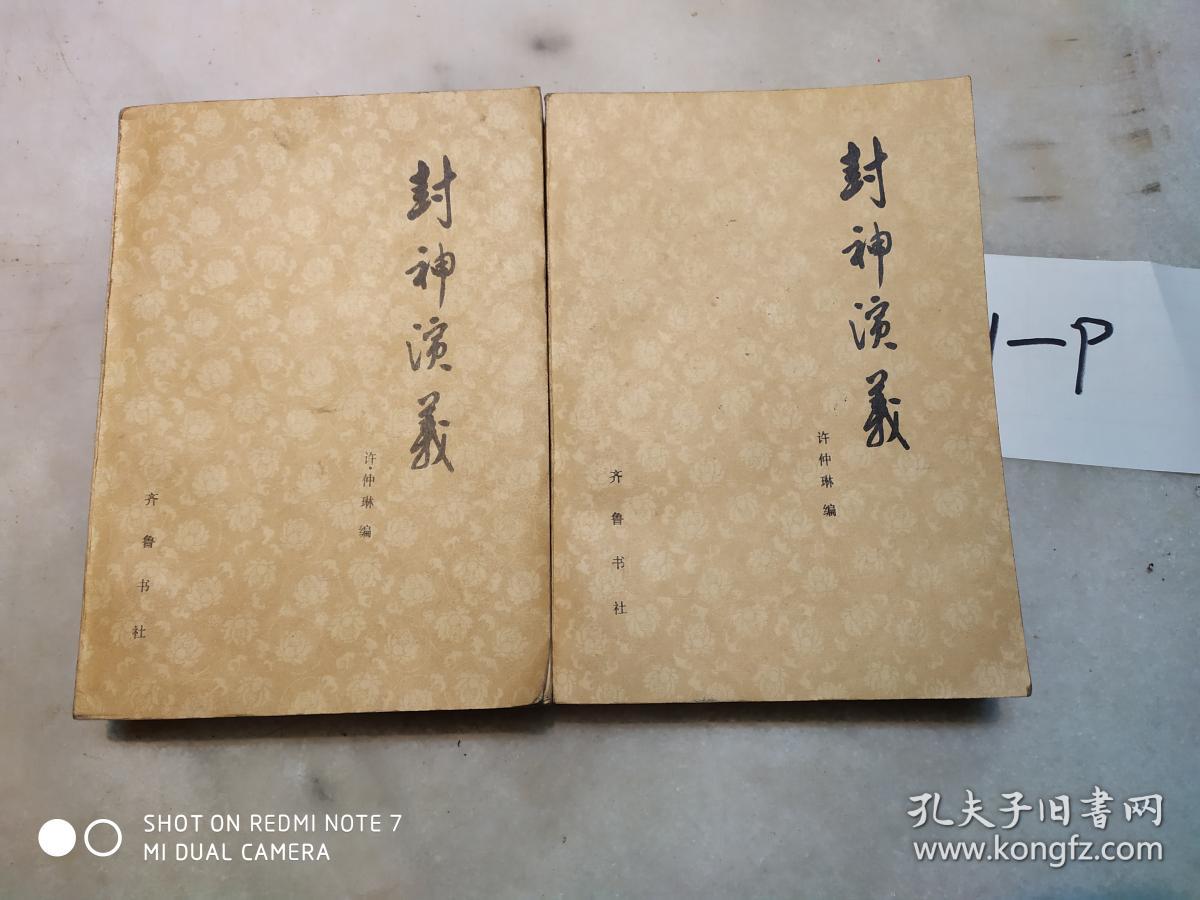 封神演義
许仲琳 编
齐鲁书社
封神演義
许仲琳 编
齐鲁书社
一P
SHOT ON REDMI NOTE 7
MI DUAL CAMERA
孔夫子旧書网
www.kongfz.com